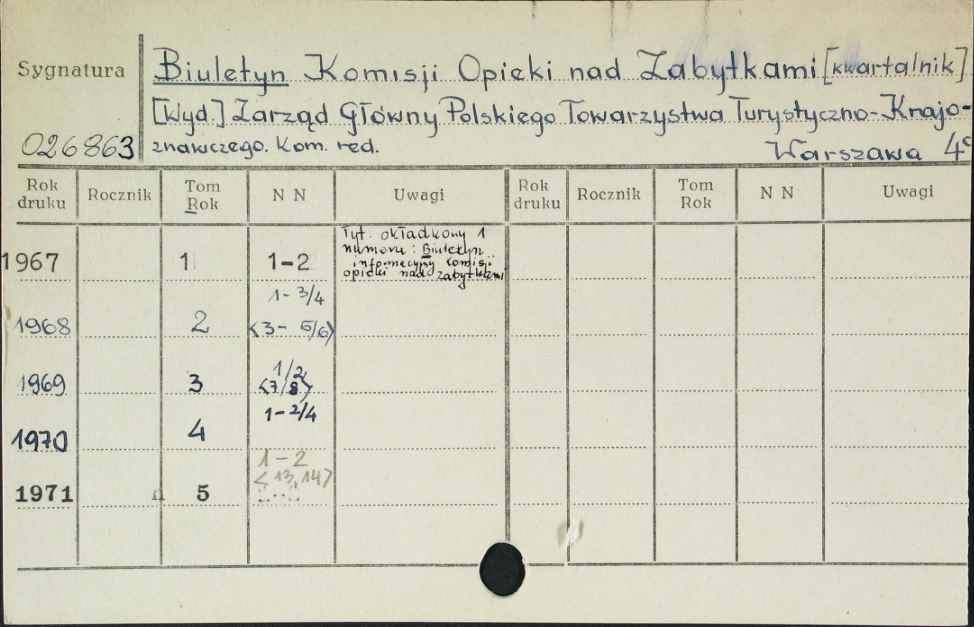 Sygnatura
Biuletyn Komisji Opieki nad Zabytkami [kwartalnik]
[Wyd.] Zarząd Główny Polskiego Towarzystwa Turystyczno-Krajo-
026863 znawczego. Kom. red. Warszawa 4°
Rok druku Rocznik Tom Rok N N Uwagi Rok druku Rocznik Tom Rok N N Uwagi
Tyt. okładkowy 1
numeru: Biuletyn
informacyjny komisji
opieki nad zabytkami
1967 1 1-2
1- 3/4
1968 2 <3- 5/6>
1/2
1969 3 <7/8>
1-2/4
1970 4
1-2
<13,14>
1971 5